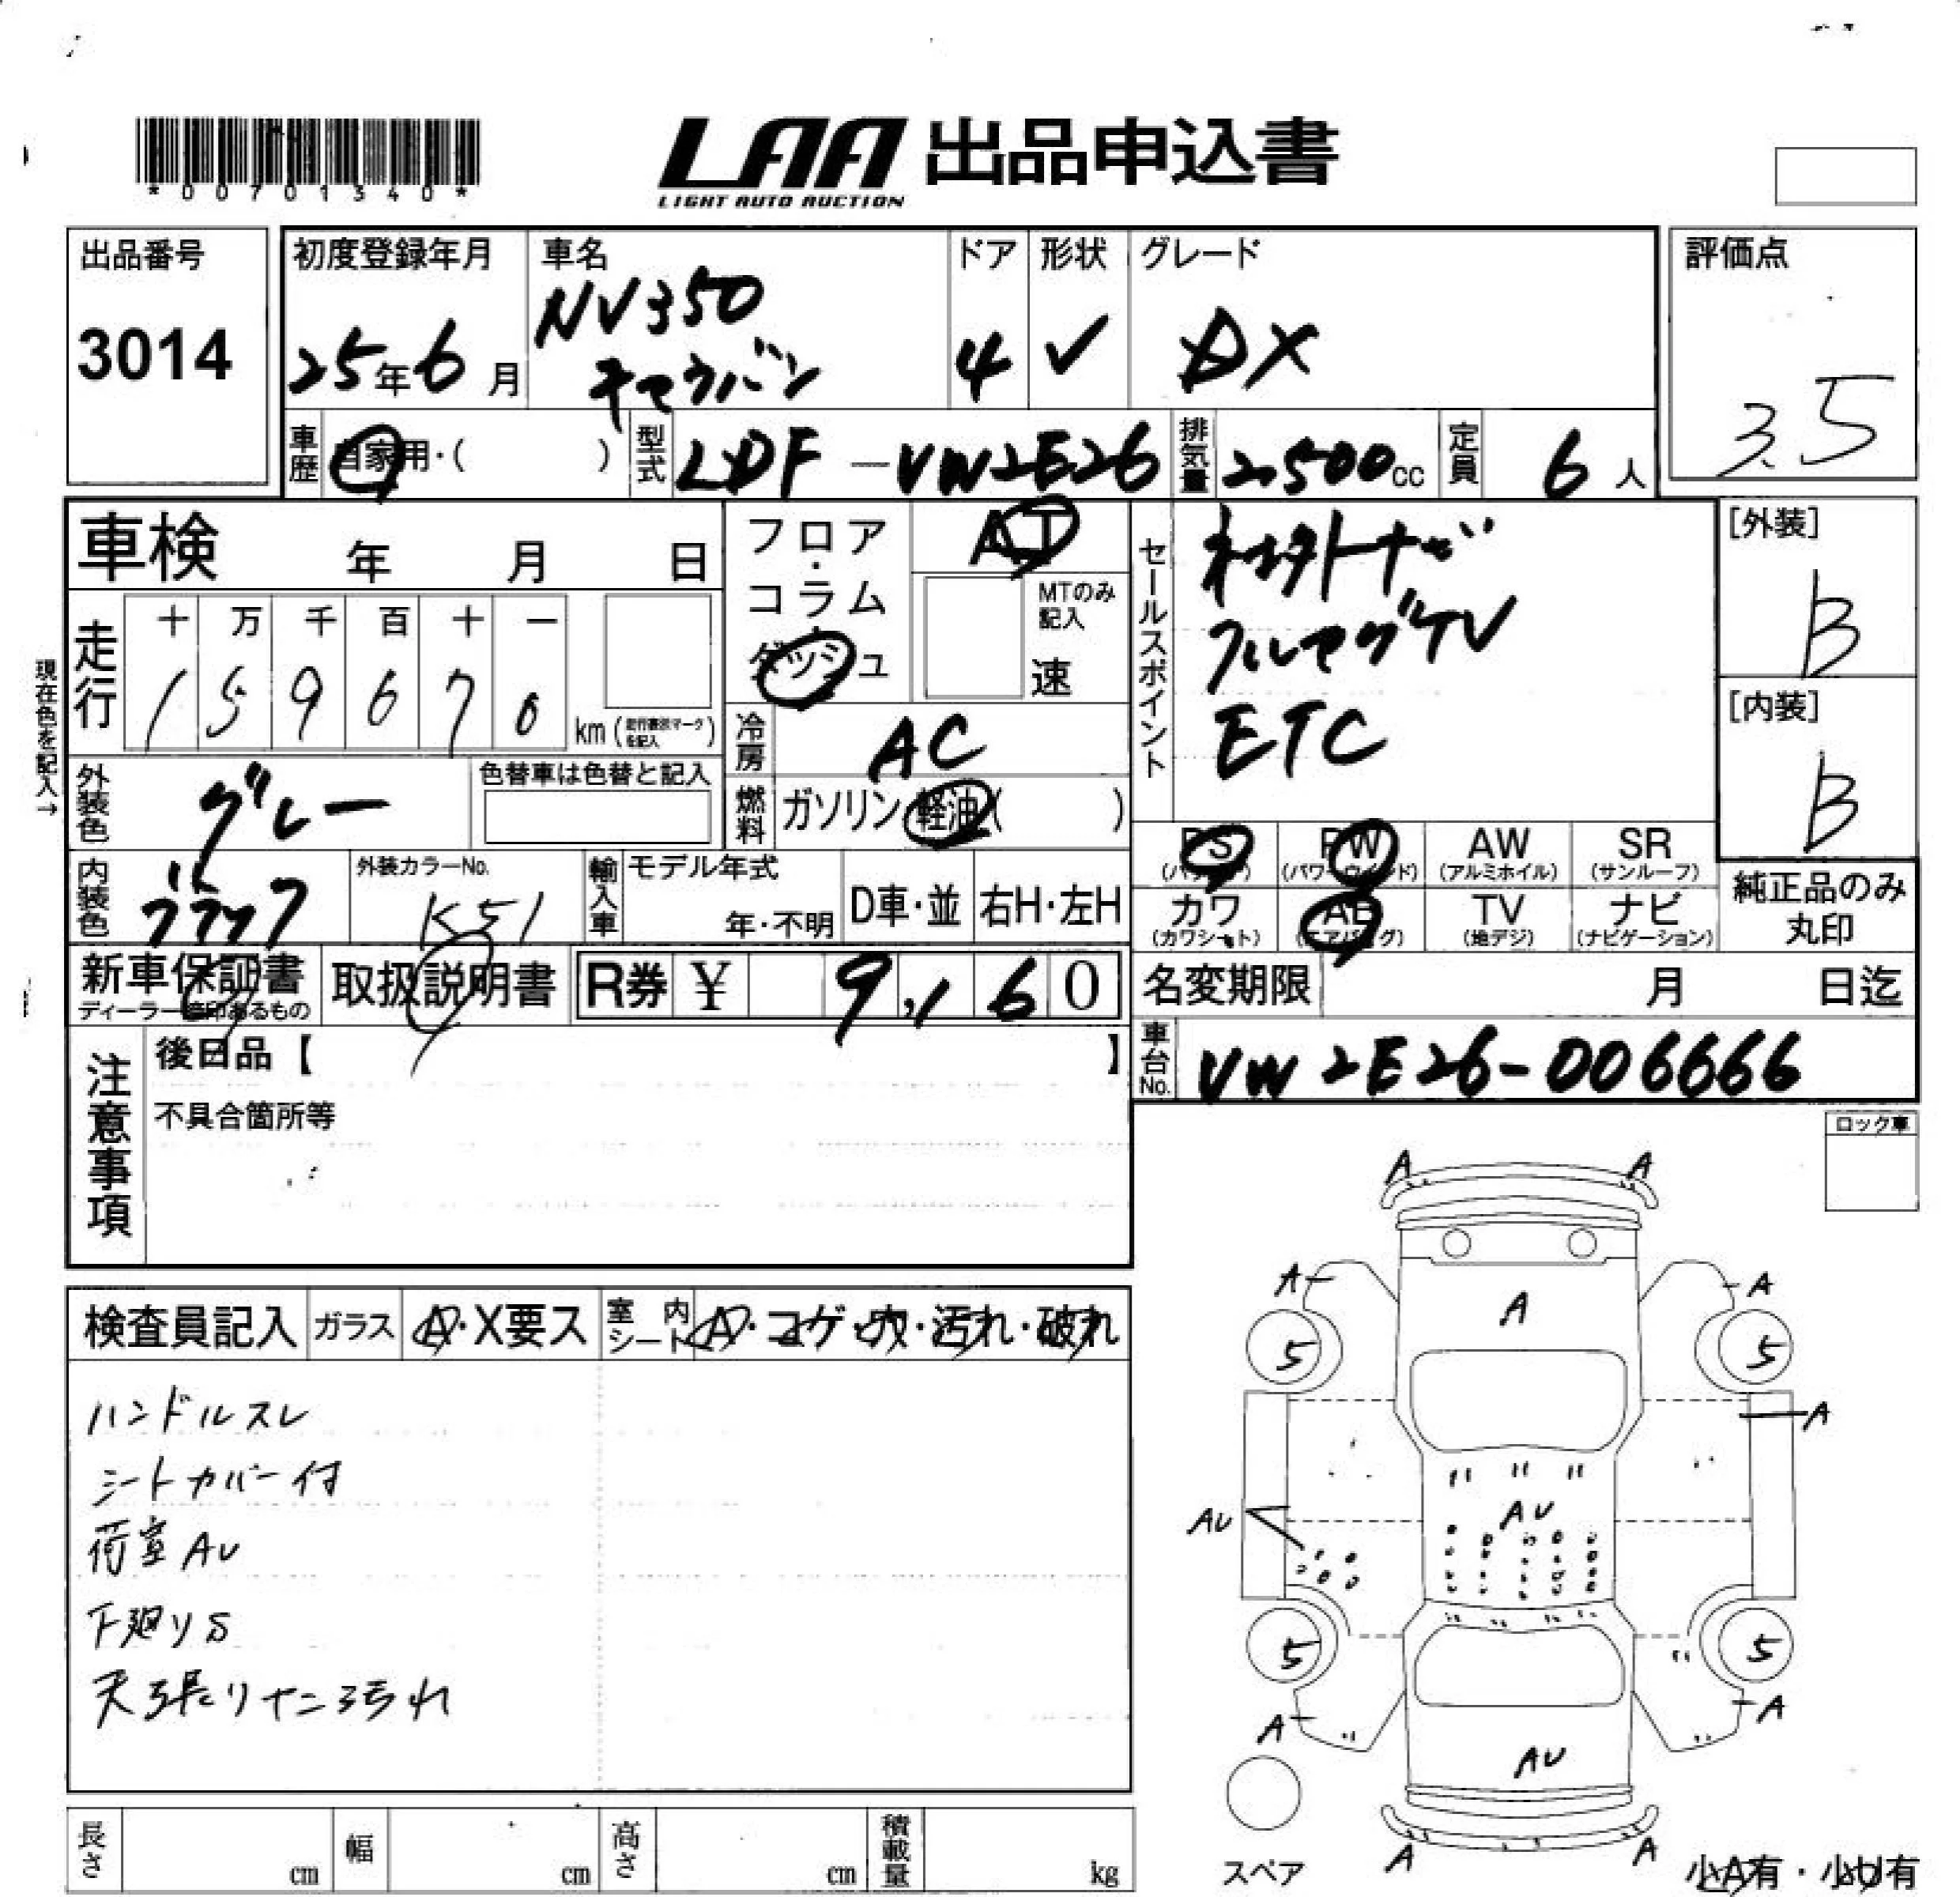 *00701340*
LAA 出品申込書
LIGHT AUTO AUCTION
出品番号
3014
初度登録年月
25年6月
車名
NV350
キャラバン
ドア
4
形状
V
グレード
DX
評価点
3.5
車歴
自家用・( )
型式
LDF-VW2E26
排気量
2500cc
定員
6人
車検 年 月 日
フロア・コラム・ダッシュ
AT
MTのみ記入
速
セールスポイント
フルセグTV
ETC
[外装]
B
[内装]
B
現在色を記入→
走行
十 万 千 百 十 一
1 5 9 6 7 0
km(走行表示マークを記入)
冷房
AC
外装色
グレー
色替車は色替と記入
燃料
ガソリン・軽油( )
PS
(パワステ)
PW
(パワーウインド)
AW
(アルミホイル)
SR
(サンルーフ)
カワ
(カワシート)
AB
(エアバッグ)
TV
(地デジ)
ナビ
(ナビゲーション)
純正品のみ
丸印
内装色
ブラック
外装カラーNo.
K51
輸入車
モデル年式
年・不明
D車・並
右H・左H
新車保証書
ディーラー捺印あるもの
取扱説明書
R券 ¥ 9,160
名変期限 月 日迄
車台No.
VW2E26-006666
注意事項
後日品【 】
不具合箇所等
ロック車
検査員記入
ガラス
A・X要ス
室内シート
A・コゲ・穴・汚れ・破れ
ハンドルスレ
シートカバー付
荷室AU
下廻りS
天張りヤニ汚れ
A A
A A
A
5 5
A
AU
AU
5 5
A A
AU
A A
スペア
小A有・小U有
長さ cm
幅 cm
高さ cm
積載量 kg